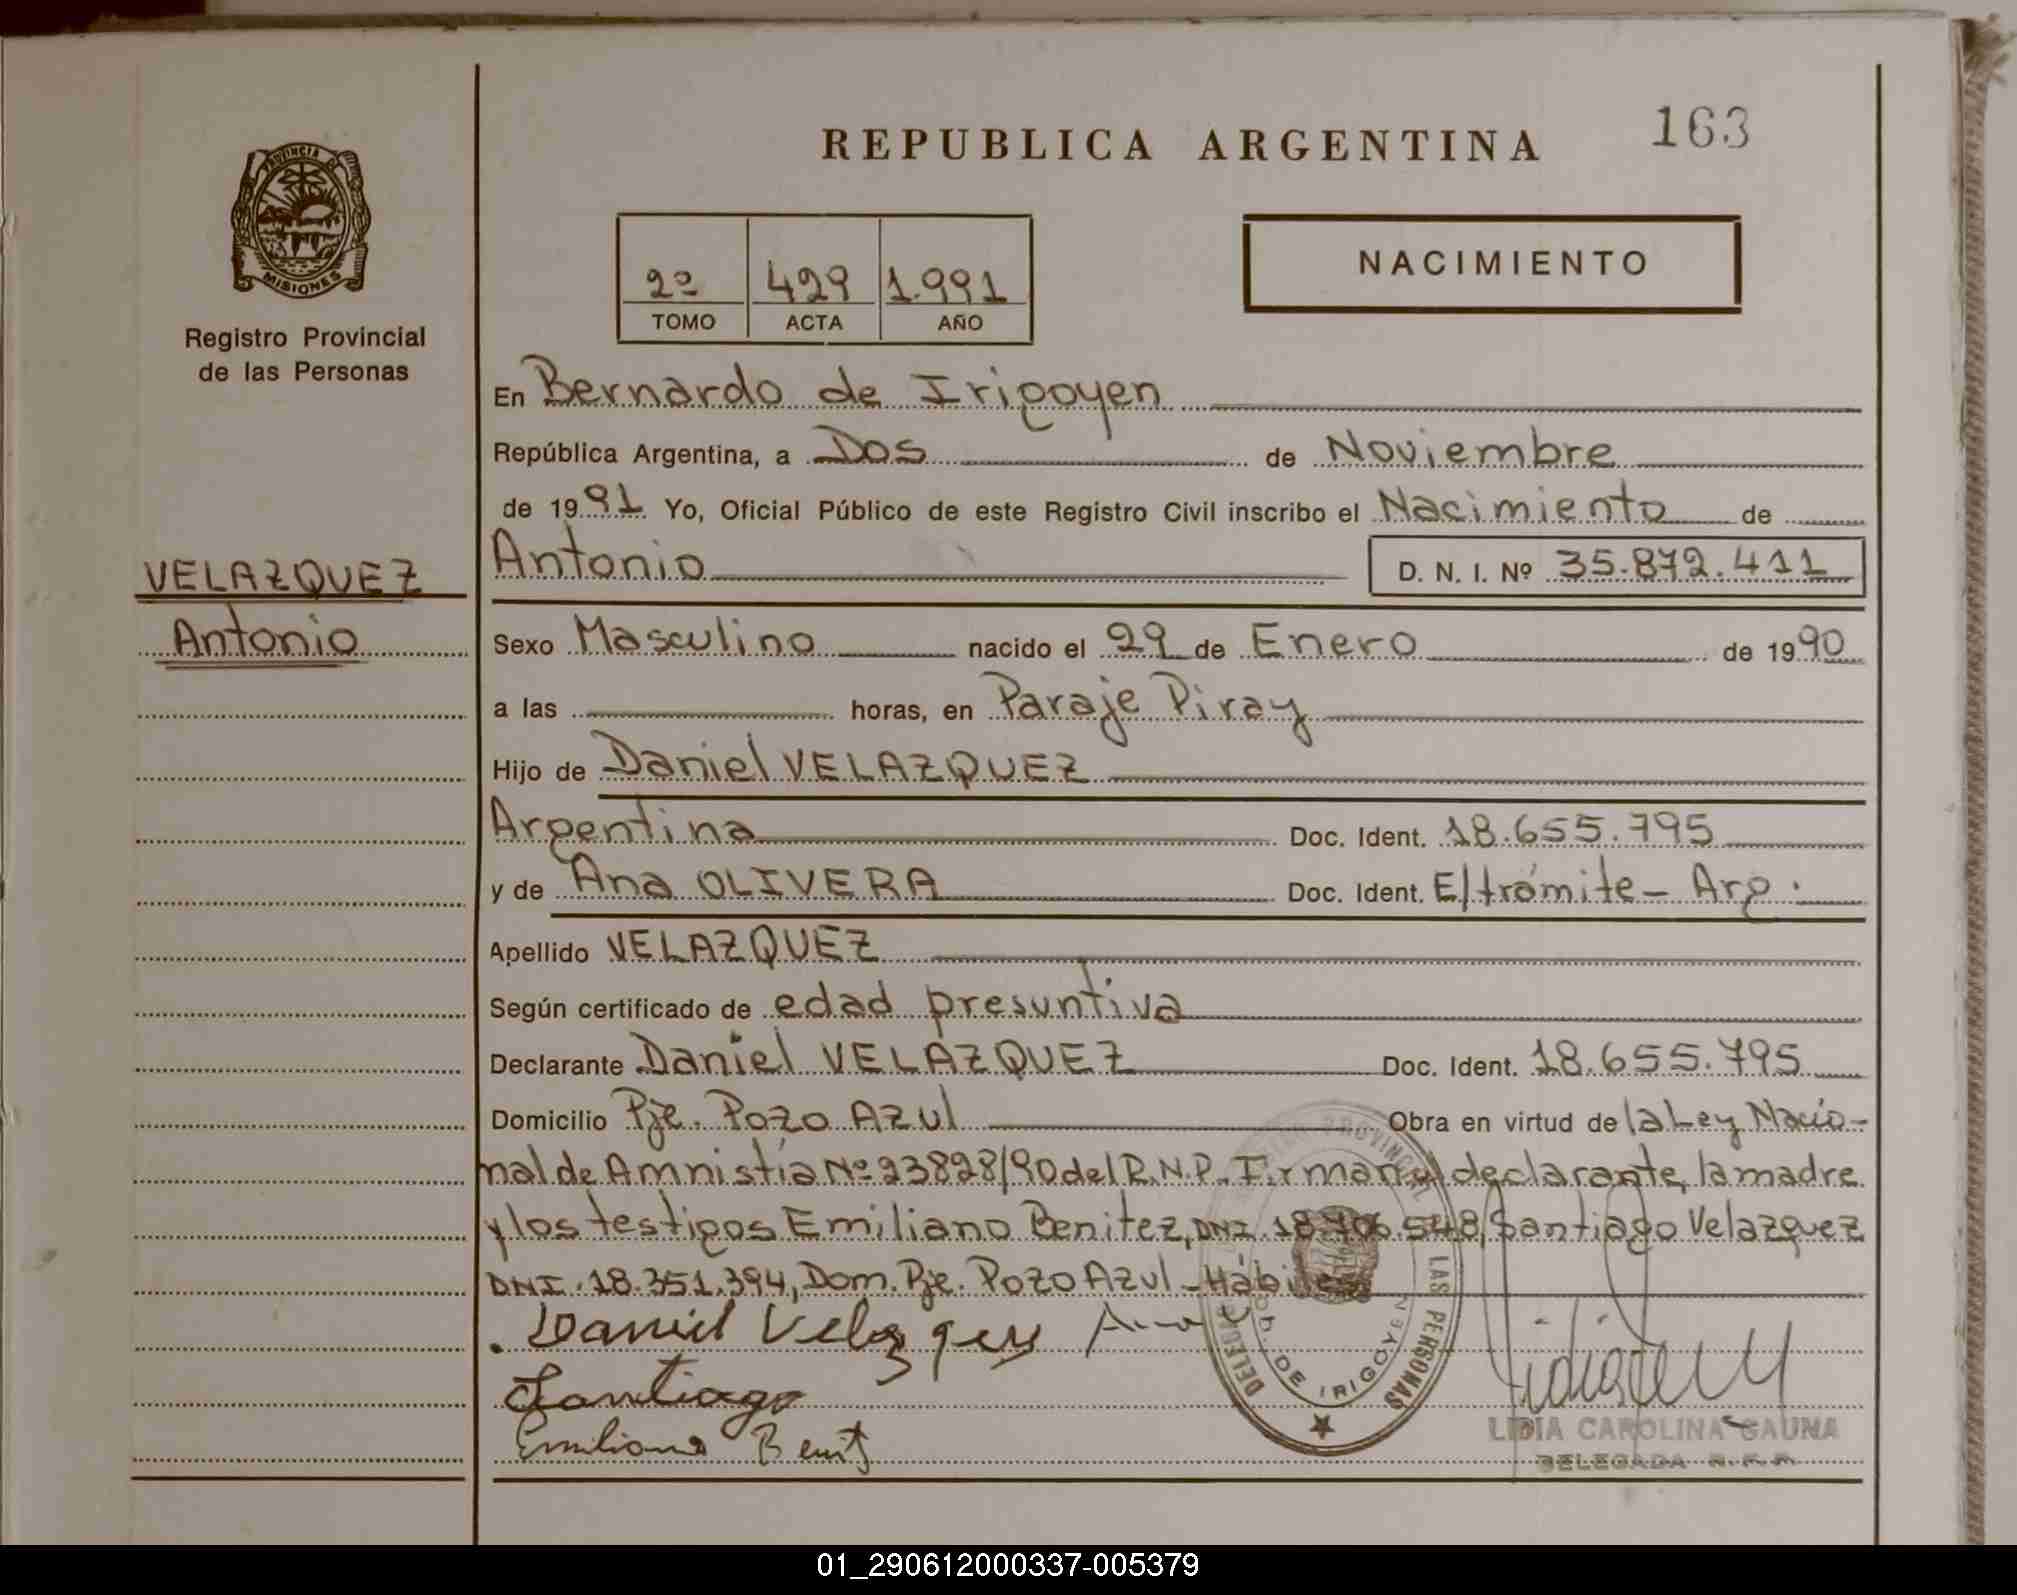 163
REPUBLICA ARGENTINA
PROVINCIA DE
MISIONES
Registro Provincial
de las Personas
2º 429 1.991
TOMO ACTA AÑO
NACIMIENTO
En Bernardo de Irigoyen
República Argentina, a Dos de Noviembre
de 1991 Yo, Oficial Público de este Registro Civil inscribo el Nacimiento de
VELAZQUEZ
Antonio
Antonio D. N. I. Nº 35.872.411
Sexo Masculino nacido el 29 de Enero de 1990
a las horas, en Paraje Piray
Hijo de Daniel VELAZQUEZ
Argentina Doc. Ident. 18.655.795
y de Ana OLIVERA Doc. Ident. E/trámite - Arg.
Apellido VELAZQUEZ
Según certificado de edad presuntiva
Declarante Daniel VELAZQUEZ Doc. Ident. 18.655.795
Domicilio Pje. Pozo Azul Obra en virtud de la Ley Nacio-
nal de Amnistía Nº 23828/90 del R.N.P. Firman el declarante, la madre
y los testigos Emiliano Benitez, DNI. 18.706.548, Santiago Velazquez
DNI. 18.351.394, Dom. Pje. Pozo Azul - Hábiles
Daniel Velazquez Ana
Santiago
Emiliano Benit
PROVINCIAL DE LAS PERSONAS
DE IRIGOYEN
LIDIA CAROLINA GAUNA
DELEGADA R.P.P.
01_290612000337-005379